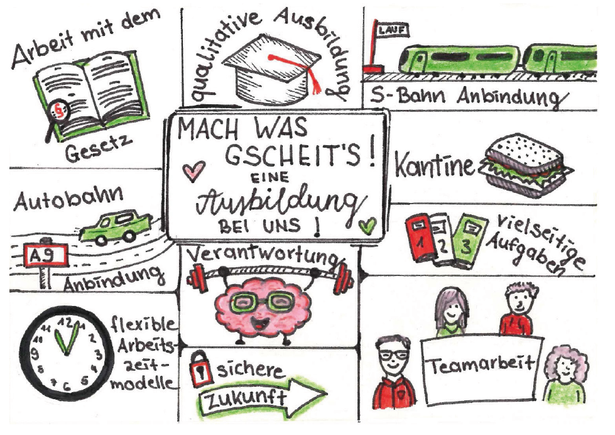 Arbeit mit dem
§
Gesetz
qualitative Ausbildung
LAUF
S-Bahn Anbindung
MACH WAS
GSCHEIT'S!
EINE
Ausbildung
BEI UNS!
Kantine
Autobahn
A9
Anbindung
Verantwortung
1 2 3
vielseitige
Aufgaben
12 1 2 3 4 5 6 7 8 9 10 11
flexible
Arbeits-
zeit-
modelle
sichere
Zukunft
Teamarbeit